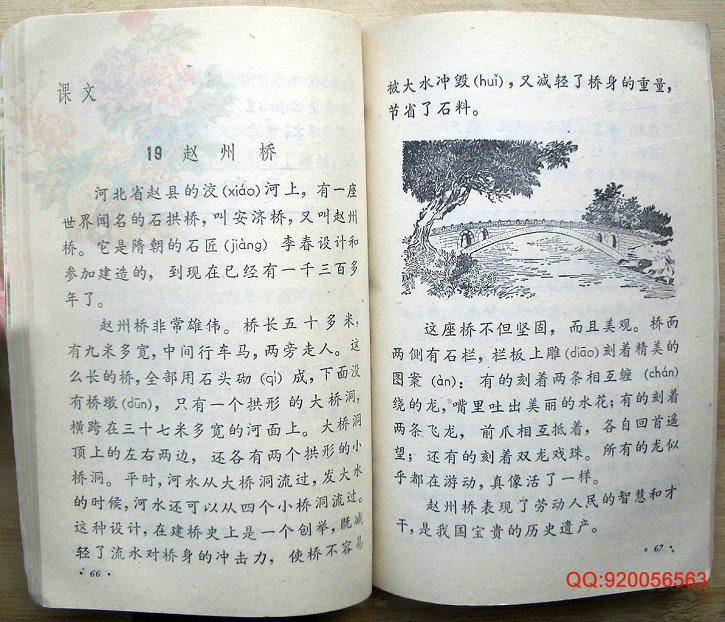 课文
19 赵州桥
河北省赵县的洨(xiáo)河上，有一座
世界闻名的石拱桥，叫安济桥，又叫赵州
桥。它是隋朝的石匠(jiàng) 李春设计和
参加建造的，到现在已经有一千三百多
年了。
赵州桥非常雄伟。桥长五十多米，
有九米多宽，中间行车马，两旁走人。这
么长的桥，全部用石头砌 (qì) 成，下面没
有桥墩(dūn)，只有一个拱形的大桥洞，
横跨在三十七米多宽的河面上。大桥洞
顶上的左右两边，还各有两个拱形的小
桥洞。平时，河水从大桥洞流过，发大水
的时候，河水还可以从四个小桥洞流过。
这种设计，在建桥史上是一个创举，既减
轻了流水对桥身的冲击力，使桥不容易
·66·
被大水冲毁(huǐ)，又减轻了桥身的重量，
节省了石料。
这座桥不但坚固，而且美观。桥面
两侧有石栏，栏板上雕(diāo)刻着精美的
图案 (àn)：有的刻着两条相互缠 (chán)
绕的龙，嘴里吐出美丽的水花；有的刻着
两条飞龙，前爪相互抵着，各自回首遥
望；还有的刻着双龙戏珠。所有的龙似
乎都在游动，真像活了一样。
赵州桥表现了劳动人民的智慧和才
干，是我国宝贵的历史遗产。
·67·
QQ:920056563